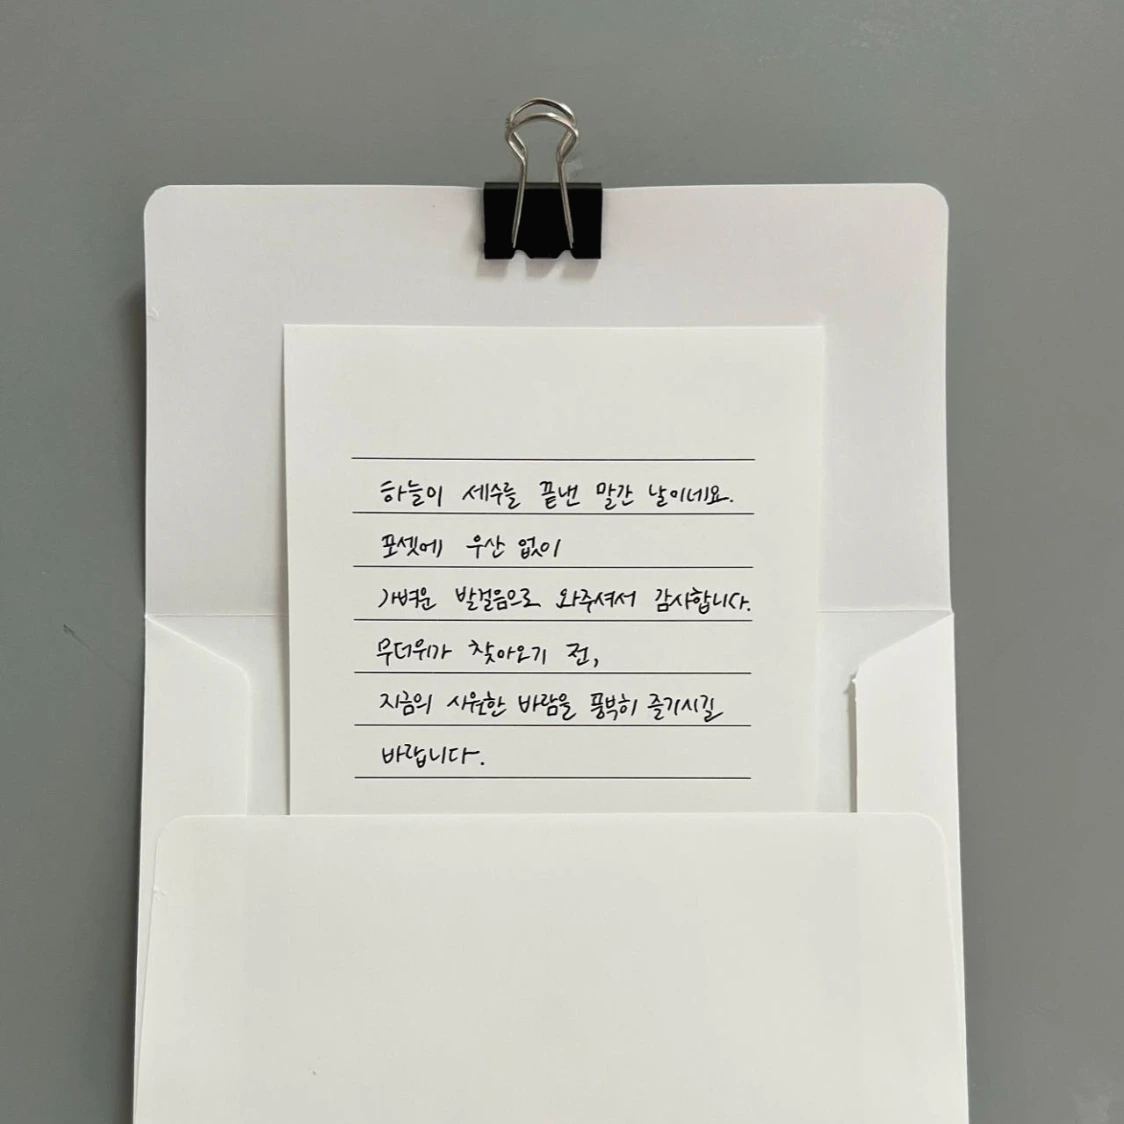 하늘이 세수를 끝낸 말간 날이네요.
포셋에 우산 없이
가벼운 발걸음으로 와주셔서 감사합니다.
무더위가 찾아오기 전,
지금의 시원한 바람을 풍부히 즐기시길
바랍니다.